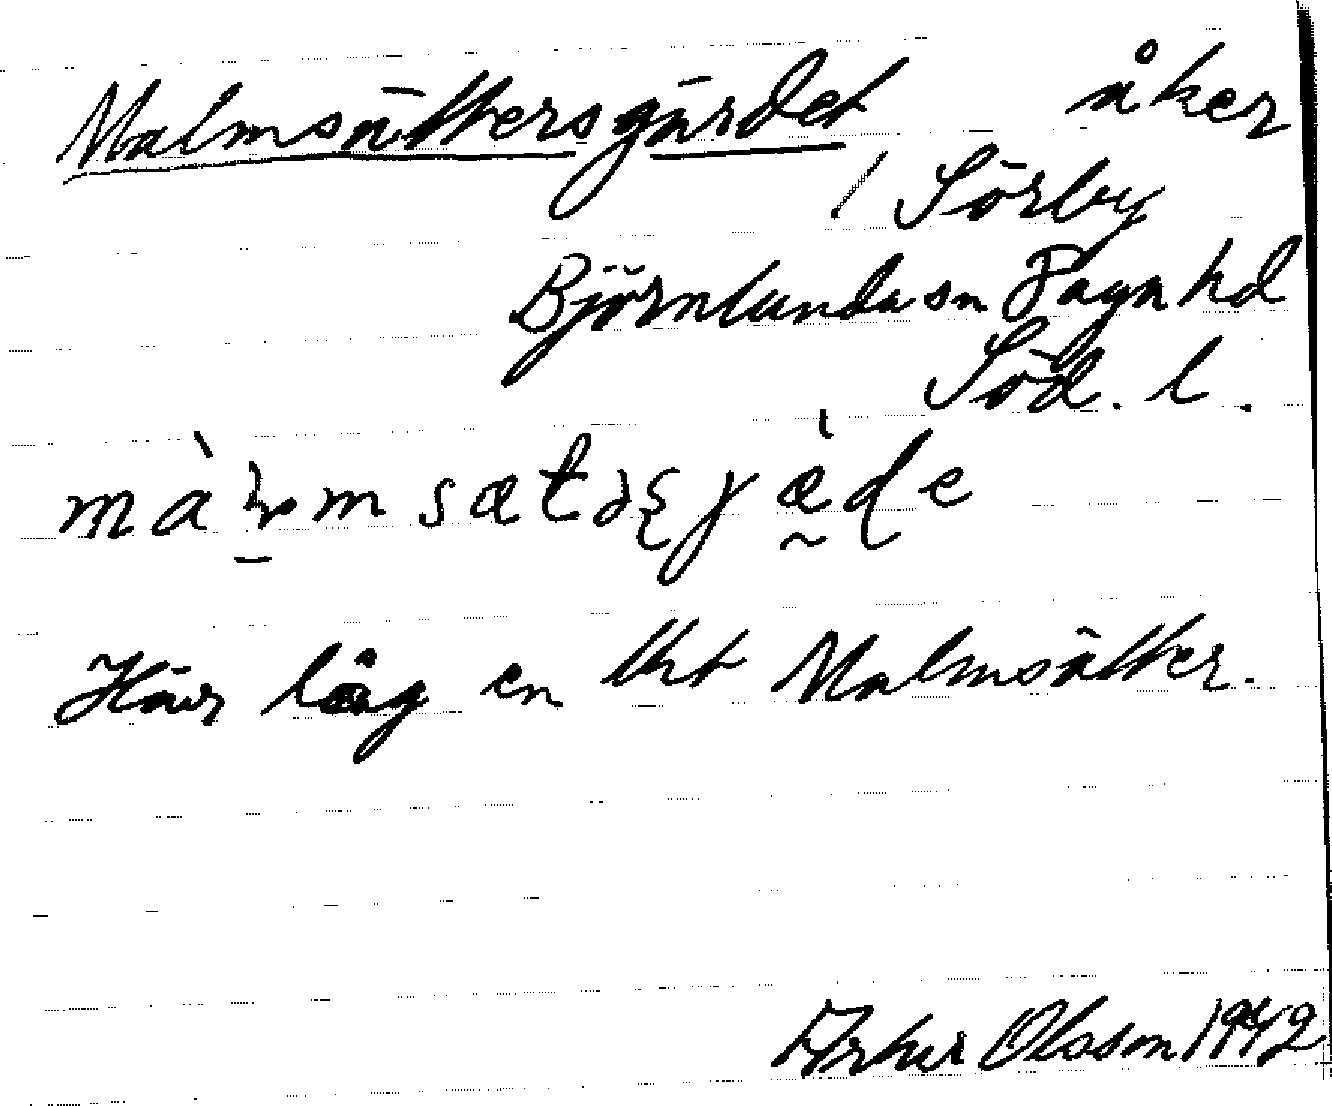 Malmsättersgärdet åker
/ Sörby
Björnlunda sn Daga hd
Söd. l.
Här låg en tht Malmsätter.
Arthur Olsson 1942